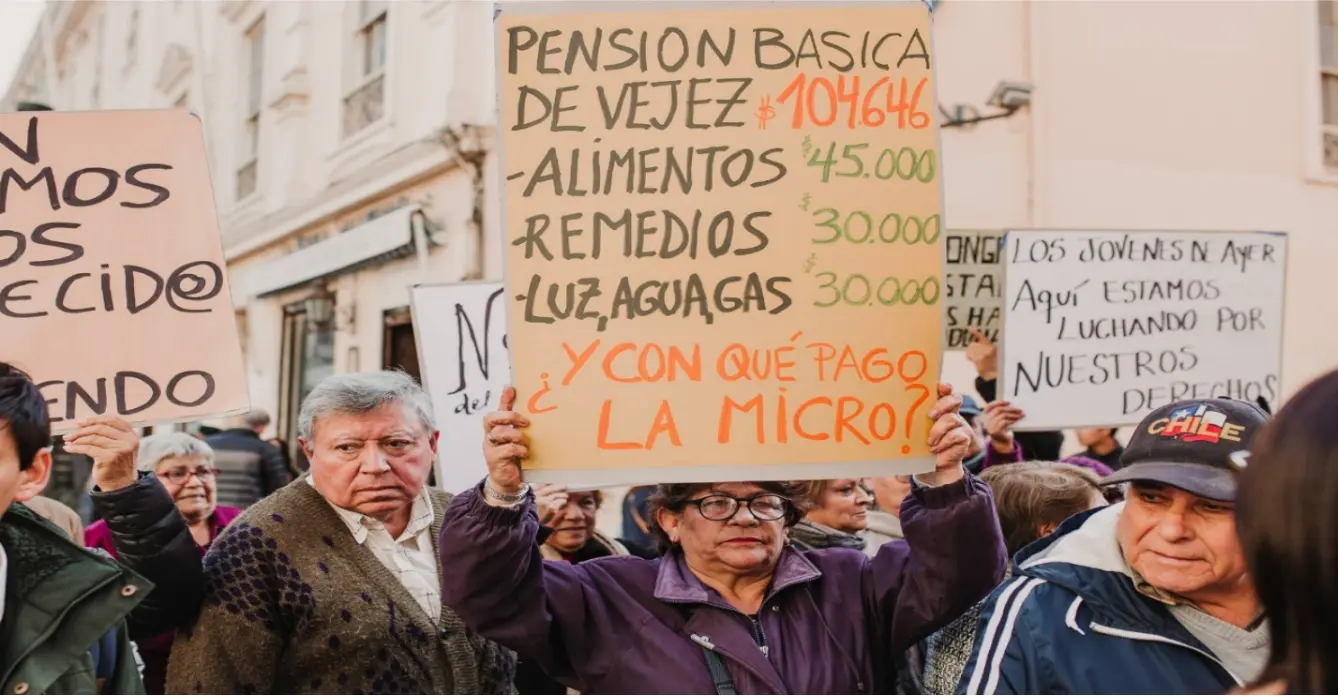 N
MOS
OS
ECID@
ENDO
PENSION BASICA
DE VEJEZ $104.646
-ALIMENTOS $45.000
-REMEDIOS $30.000
-LUZ,AGUA,GAS $30.000
¿Y CON QUÉ PAGO
LA MICRO?
LOS JOVENES DE AYER
AQUÍ ESTAMOS
LUCHANDO POR
NUESTROS
DERECHOS
CHILE